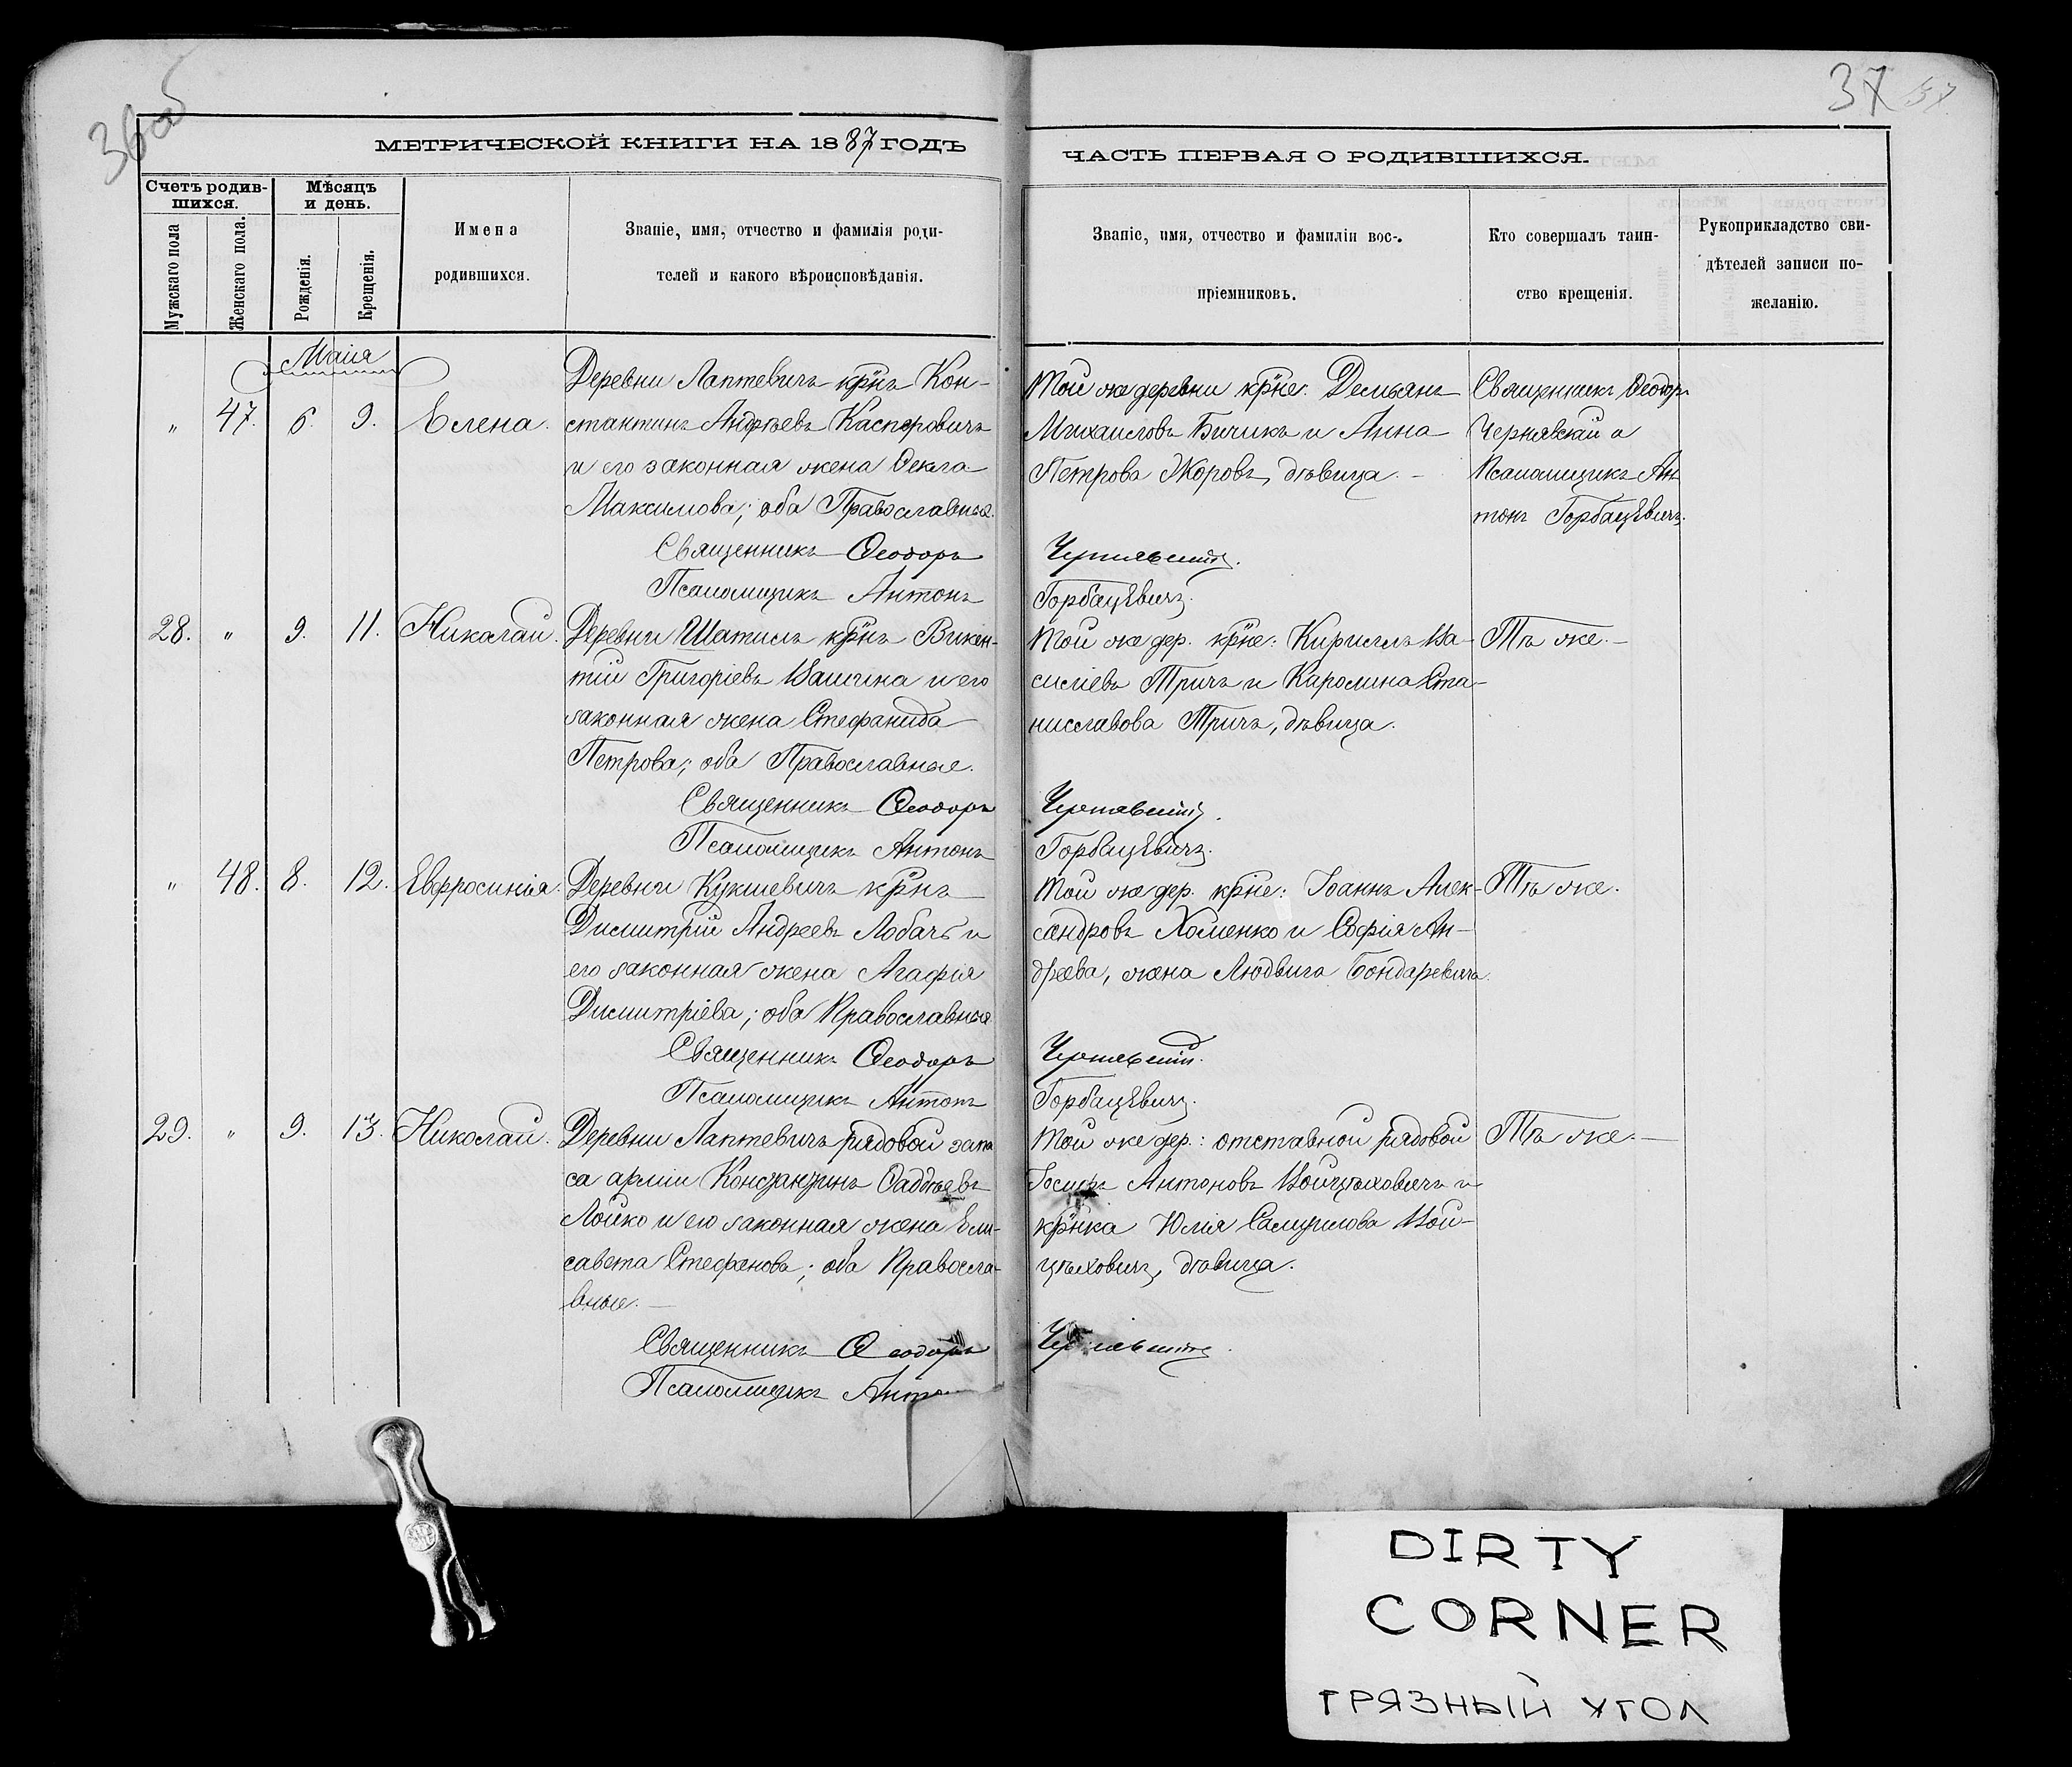 36об
37
МЕТРИЧЕСКОЙ КНИГИ НА 1887 ГОДЪ
ЧАСТЬ ПЕРВАЯ О РОДИВШИХСЯ.
Счетъ родив-
шихся.
Мужскаго пола
Женскаго пола.
Мѣсяцъ
и день.
Рожденія.
Крещенія.
Имена
родившихся.
Званіе, имя, отчество и фамилія роди-
телей и какого вѣроисповѣданія.
Званіе, имя, отчество и фамиліи вос-
пріемниковъ.
Кто совершалъ таин-
ство крещенія.
Рукоприкладство сви-
дѣтелей записи по-
желанію.
Маія
" 47. 6. 9. Елена.
Деревни Лаптевичъ крн̃ъ Кон-
стантинъ Андреевъ Касперовичъ
и его законная жена Ѳекла
Максимова; оба Православные.
Священникъ Ѳеодоръ
Псаломщикъ Антонъ
Той же деревни крн̃е: Демьянъ
Михаиловъ Бичикъ и Анна
Петрова Жоровъ, дѣвица. –
Чернявскій.
Горбацевичъ.
Священникъ Ѳеодоръ
Чернявскій и
Псаломщикъ Ан
тонъ Горбацевичъ.
28. " 9. 11. Николай.
Деревни Шатилъ крн̃ъ Викен-
тій Григоріевъ Вашина и его
законная жена Стефанида
Петрова; оба Православные.
Священникъ Ѳеодоръ
Псаломщикъ Антонъ
Той же дер. крн̃е: Кириллъ Ва-
силіевъ Тричъ и Каролина Ста-
ниславова Тричъ, дѣвица.
Чернявскій.
Горбацевичъ.
Тѣ же. –
" 48. 8. 12. Евфросинія.
Деревни Кукшевичъ крн̃ъ
Димитрій Андреевъ Лобачъ и
его законная жена Агафія
Димитріева; оба Православные
Священникъ Ѳеодоръ
Псаломщикъ Антонъ
Той же дер. крн̃е: Іоаннъ Алек-
сандровъ Хоменко и Софія Ан-
дреева, жена Людвига Бондаревича.
Чернявскій.
Горбацевичъ.
Тѣ же.
29. " 9. 13. Николай.
Деревни Лаптевичъ рядовой запа
са арміи Константинъ Ѳаддѣевъ
Лойко и его законная жена Ели-
савета Стефанова; оба Правосла-
вные. –
Священникъ Ѳеодоръ
Псаломщикъ
Той же дер.: отставной рядовой
Іосифъ Антоновъ Войцѣховичъ и
крн̃ка Юлія Самуилова Вой-
цѣховичъ, дѣвица.
Тѣ же. –
DIRTY
CORNER
ГРЯЗНЫЙ УГОЛ